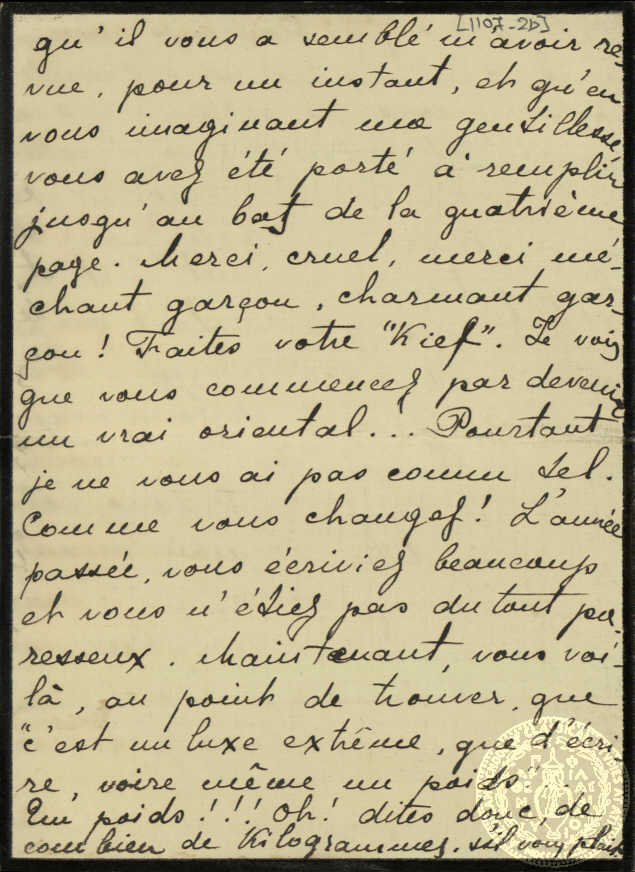 [1107-2b]
qu'il vous a semblé m'avoir re-
vue, pour un instant, et qu'en
vous imaginant ma gentillesse,
vous avez été porté à remplir
jusqu'au bas de la quatrième
page. Merci, cruel, merci mé-
chant garçon, charmant gar-
çon! Faites votre "Kief". Je vois
que vous commencez par devenir
un vrai oriental... Pourtant
je ne vous ai pas connu tel.
Comme vous changez! L'année
passée, vous écriviez beaucoup
et vous n'étiez pas du tout pa-
resseux. Maintenant, vous voi-
là, au point de trouver, que
"c'est un luxe extrême, que d'écri-
re, voire même un poids"...
Un poids!!! Oh! dites donc, de
combien de Kilogrammes. s'il vous plait.